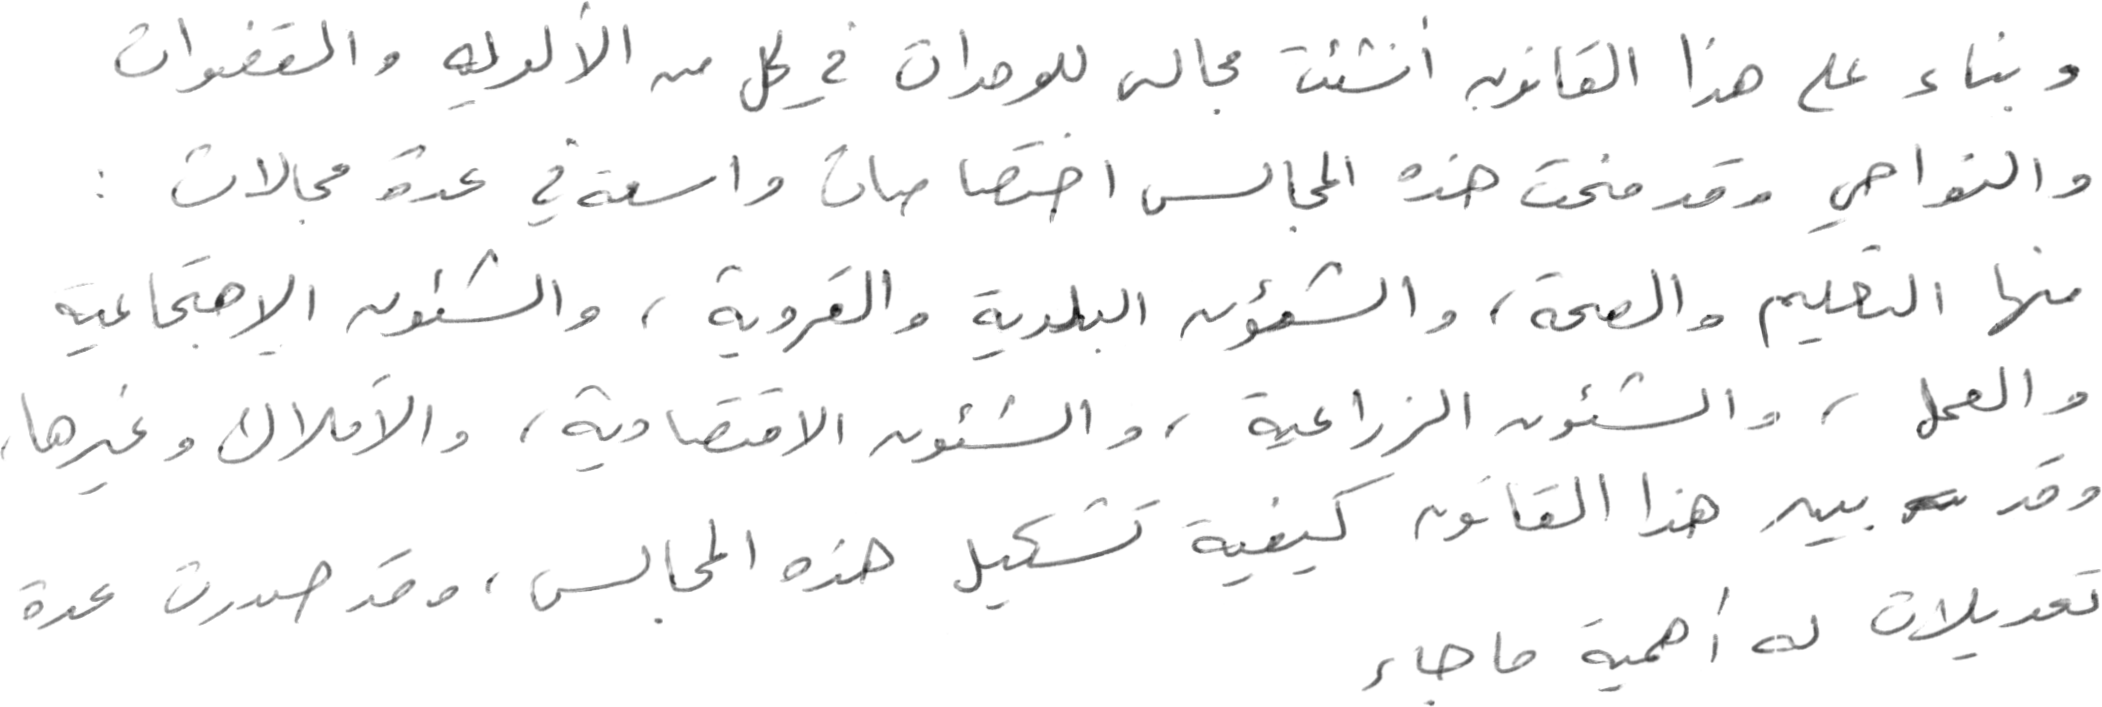 وبناء على هذا القانون أنشئت مجالس للوحدات في كل من الألوية والقضوات
والنواحي وقد منحت هذه المجالس اختصاصات واسعة في عدة مجالات :
منها التعليم والصحة، والشؤون البلدية والقروية، والشئون الإجتماعية
والعمل، والشئون الزراعية، والشئون الاقتصادية، والأملاك وغيرها،
وقد بين هذا القانون كيفية تشكيل هذه المجالس، وقد صدرت عدة
تعديلات له أهمية ما جاء